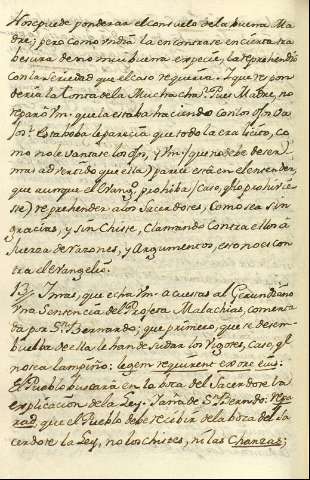 No se puede ponderar el consuelo de la buena Ma
dre; pero como un dia la encontrase en cierta tra
besura de no mui buena especie, la reprehendió
con la seriedad que el caso requeria. Y que respon
deria la tonta de la Muchacha? Pues Madre, no
repara Vm. que la estaba haciendo con los ojos Ba
jos? Esta boba le parecia que todo la era licito, co
mo no levantase los ojos, y Vm. (que no debe de ser
mas advertido que ella) parece está en el entender,
que aunque el Evang.o prohiba (caso, q.e lo prohivie
sse) reprehender a los Sacerdotes, como sea sin
gracias, y sin chiste, clamando contra ellos à
fuerza de razones, y Argumentos, esso no es con
tra el Evangelio.
13// Y mas, que echa Vm. a cuestas al Gerundiano
una Sentencia del Profeta Malachias, comenta
da por S.n Bernardo; que primero, que se desem
buelba de ella le han de sudar los vigotes, caso, q.e
no sea lampiño: legem requirent ex ore eius:
El Pueblo buscará en la boca del Sacerdote la
explicacion de la Ley. Y añade S.n Bernardo: repa
rad, que el Pueblo debe recibir de la boca del Sa
cerdote la Ley, no los chistes, ni las Chanzas;